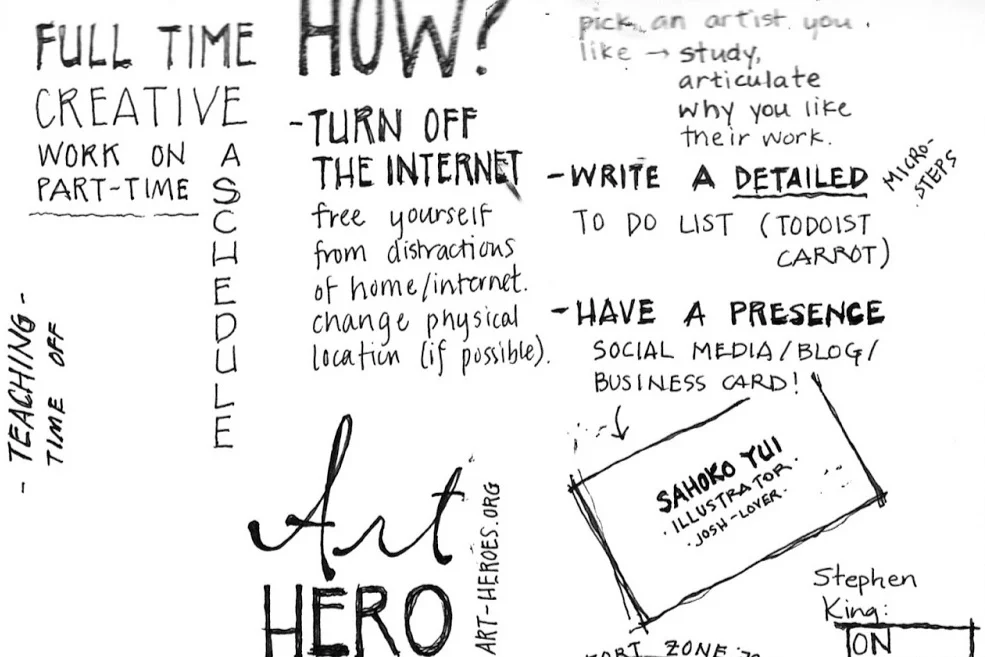 FULL TIME
CREATIVE
WORK ON A
PART-TIME
SCHEDULE
- TEACHING -
TIME OFF
HOW?
- TURN OFF
THE INTERNET
free yourself
from distractions
of home/internet.
change physical
location (if possible).
Art
HERO
ART-HEROES.ORG
pick an artist you
like → study,
articulate
why you like
their work.
- WRITE A DETAILED
MICRO-
STEPS
TO DO LIST (TODOIST
CARROT)
- HAVE A PRESENCE
SOCIAL MEDIA/BLOG/
BUSINESS CARD!
SAHOKO YUI
· ILLUSTRATOR ·
· JOSH-LOVER ·
Stephen
King:
ON
ZONE